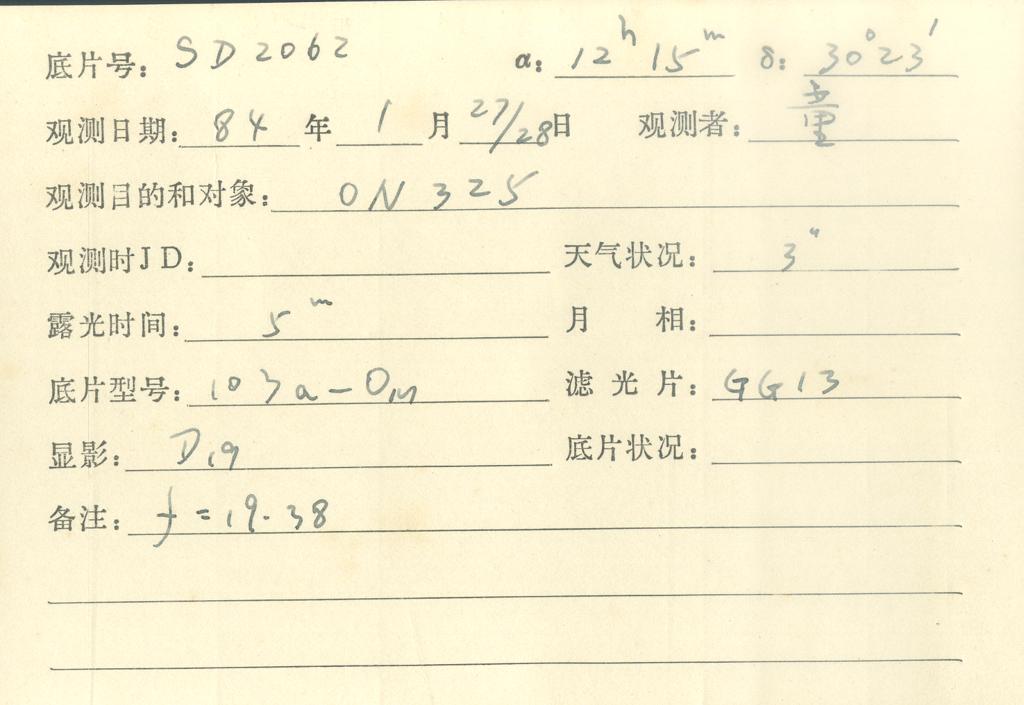 底片号: SD2062 α: 12ʰ 15ᵐ δ: 30°23′
观测日期: 84 年 1 月 27/28 日 观测者: 童
观测目的和对象: ON 325
观测时JD: 天气状况: 3″
露光时间: 5ᵐ 月 相:
底片型号: 103a-O 滤 光 片: GG13
显影: D19 底片状况:
备注: f=19.38